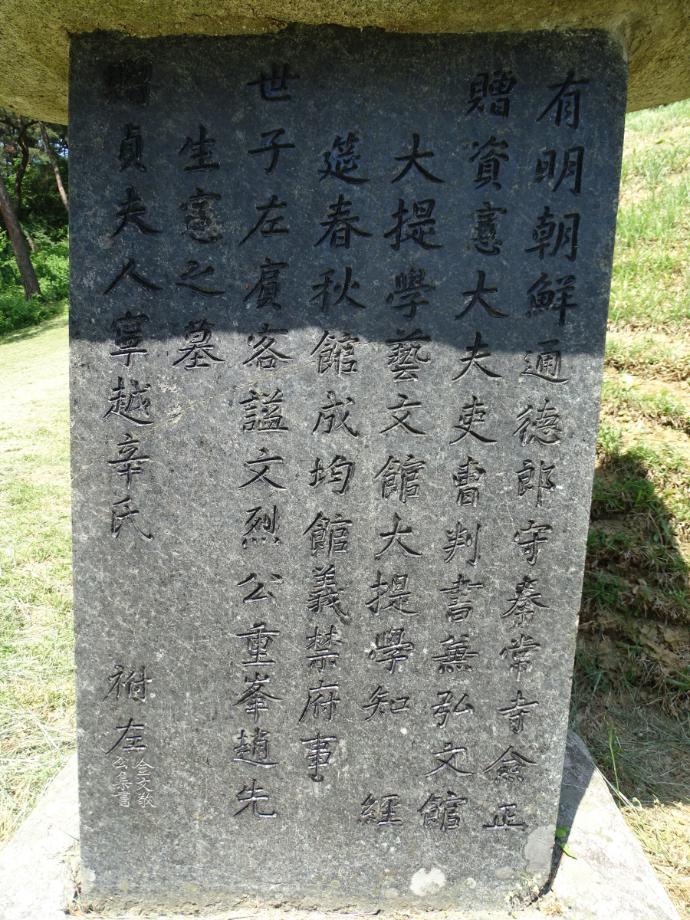 有明朝鮮通德郎守奉常寺僉正
贈資憲大夫吏曹判書兼弘文館
大提學藝文館大提學知 經
筵春秋館成均館義禁府事
世子左賓客謚文烈公重峯趙先
生憲之墓
贈貞夫人寧越辛氏 祔左
金文敬
公集書